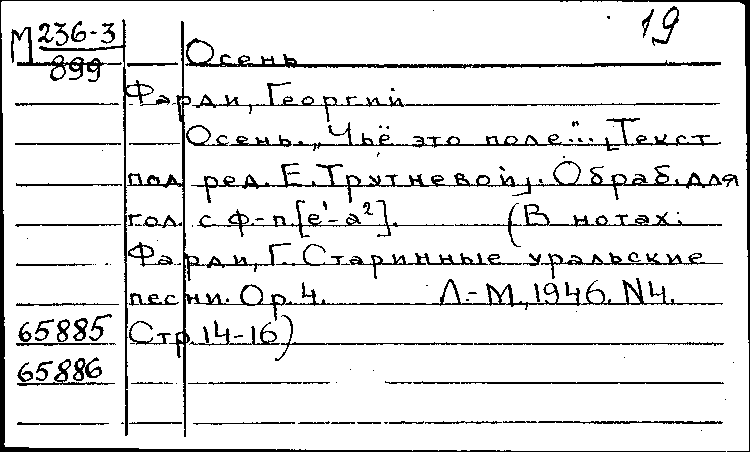 М 236-3 19
899 Осень
Фарди, Георгий
Осень. „Чьё это поле"... [Текст
под ред. Е. Трутневой]. Обраб. для
гол. с ф-п. [e¹-a²]. (В нотах:
Фарди, Г. Старинные уральские
песни. Op. 4. Л.-М., 1946. N4.
65885 Стр. 14-16)
65886